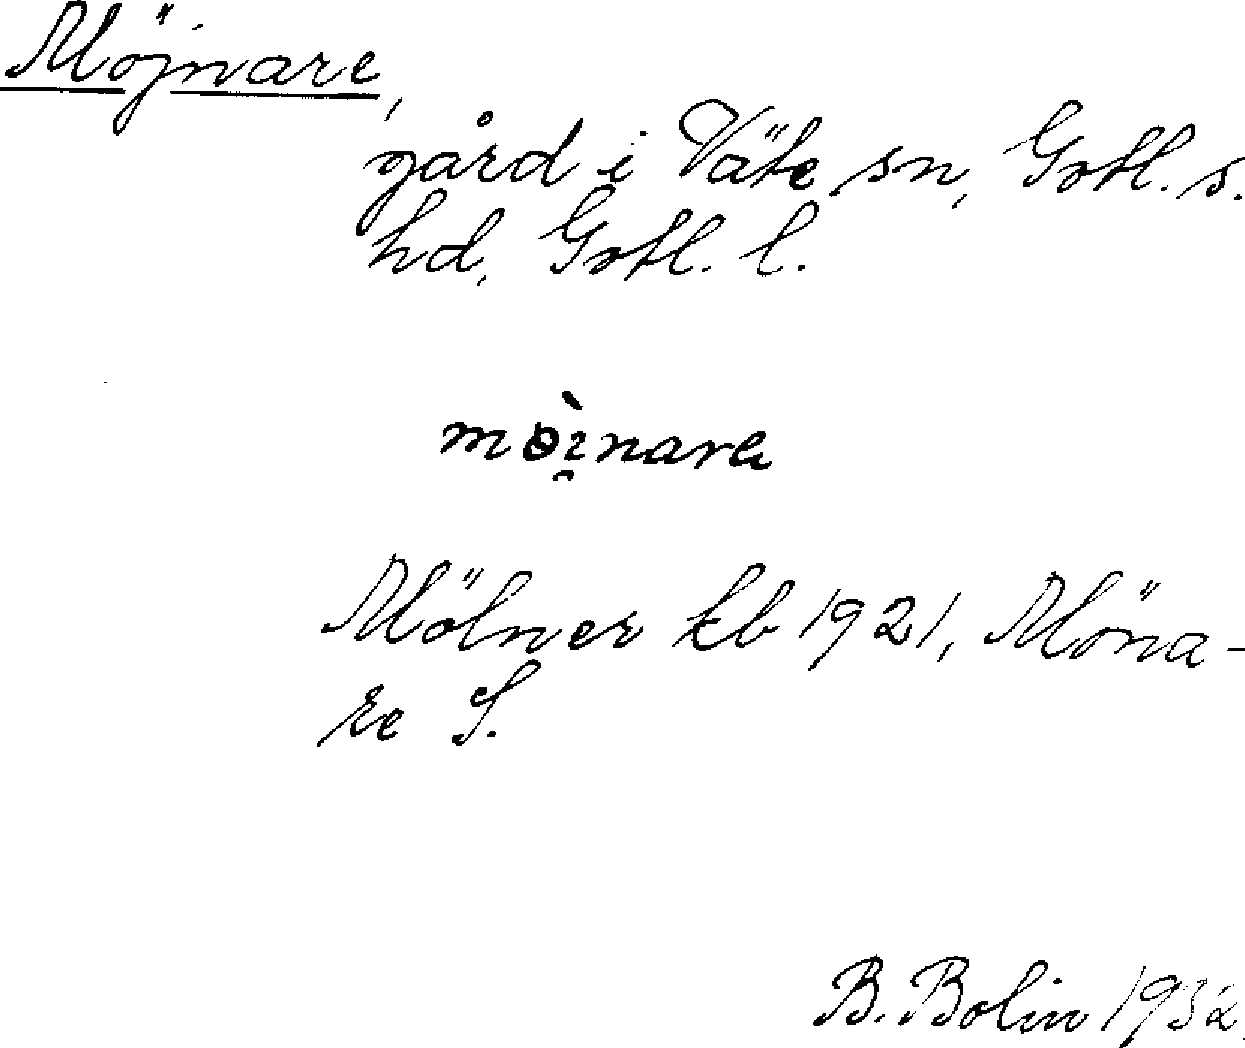 Möjnare,
gård i Väte sn, Gotl. s.
hd, Gotl. l.
mòi̯nara
Mölner kb 1921, Möna-
re S.
B. Bolin 1932.